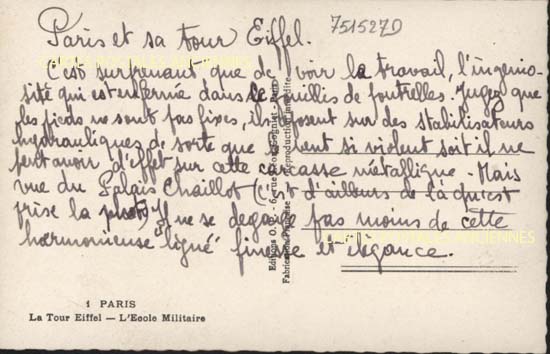 751527D
Paris et sa tour Eiffel.
C'est surprenant que de voir le travail, l'ingénio-
sité qui est enfermée dans ce fouillis de poutrelles. Jugez que
les pieds ne sont pas fixes, ils reposent sur des stabilisateurs
hydrauliques de sorte que le vent si violent soit il ne
peut avoir d'effet sur cette carcasse métallique - Mais
vue du Palais Chaillot (c'est d'ailleurs de là qu'est
prise la photo) il ne se dégage pas moins de cette
harmonieuse "ligne" finesse et élégance.
CARTES POSTALES ANCIENNES
CARTES POSTALES ANCIENNES
Fabrication Française - Reproduction interdite
1 PARIS
La Tour Eiffel — L'Ecole Militaire